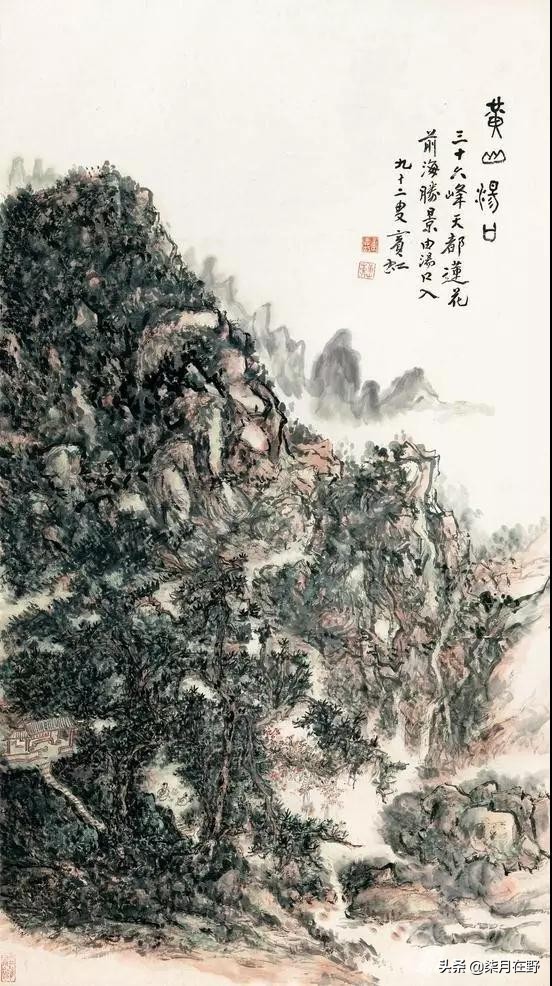 黄山湯口
三十六峰天都蓮花
前海勝景由湯口入
九十二叟賓虹
头条 @柒月在野